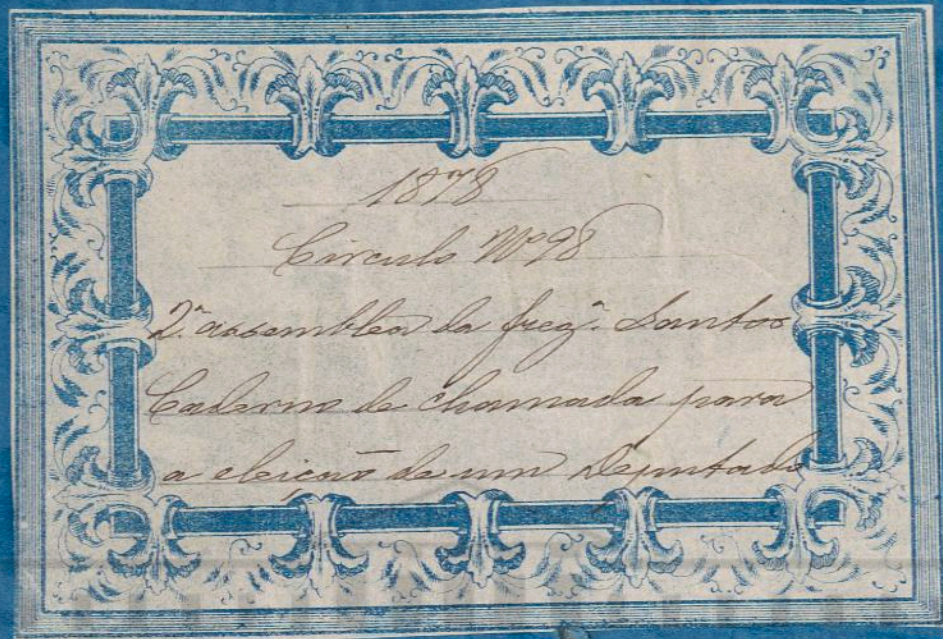 1878
Circulo Nº 98
2.ª assemblea da freg.ª Santos
Caderno de chamada para
a eleição de um Deputado